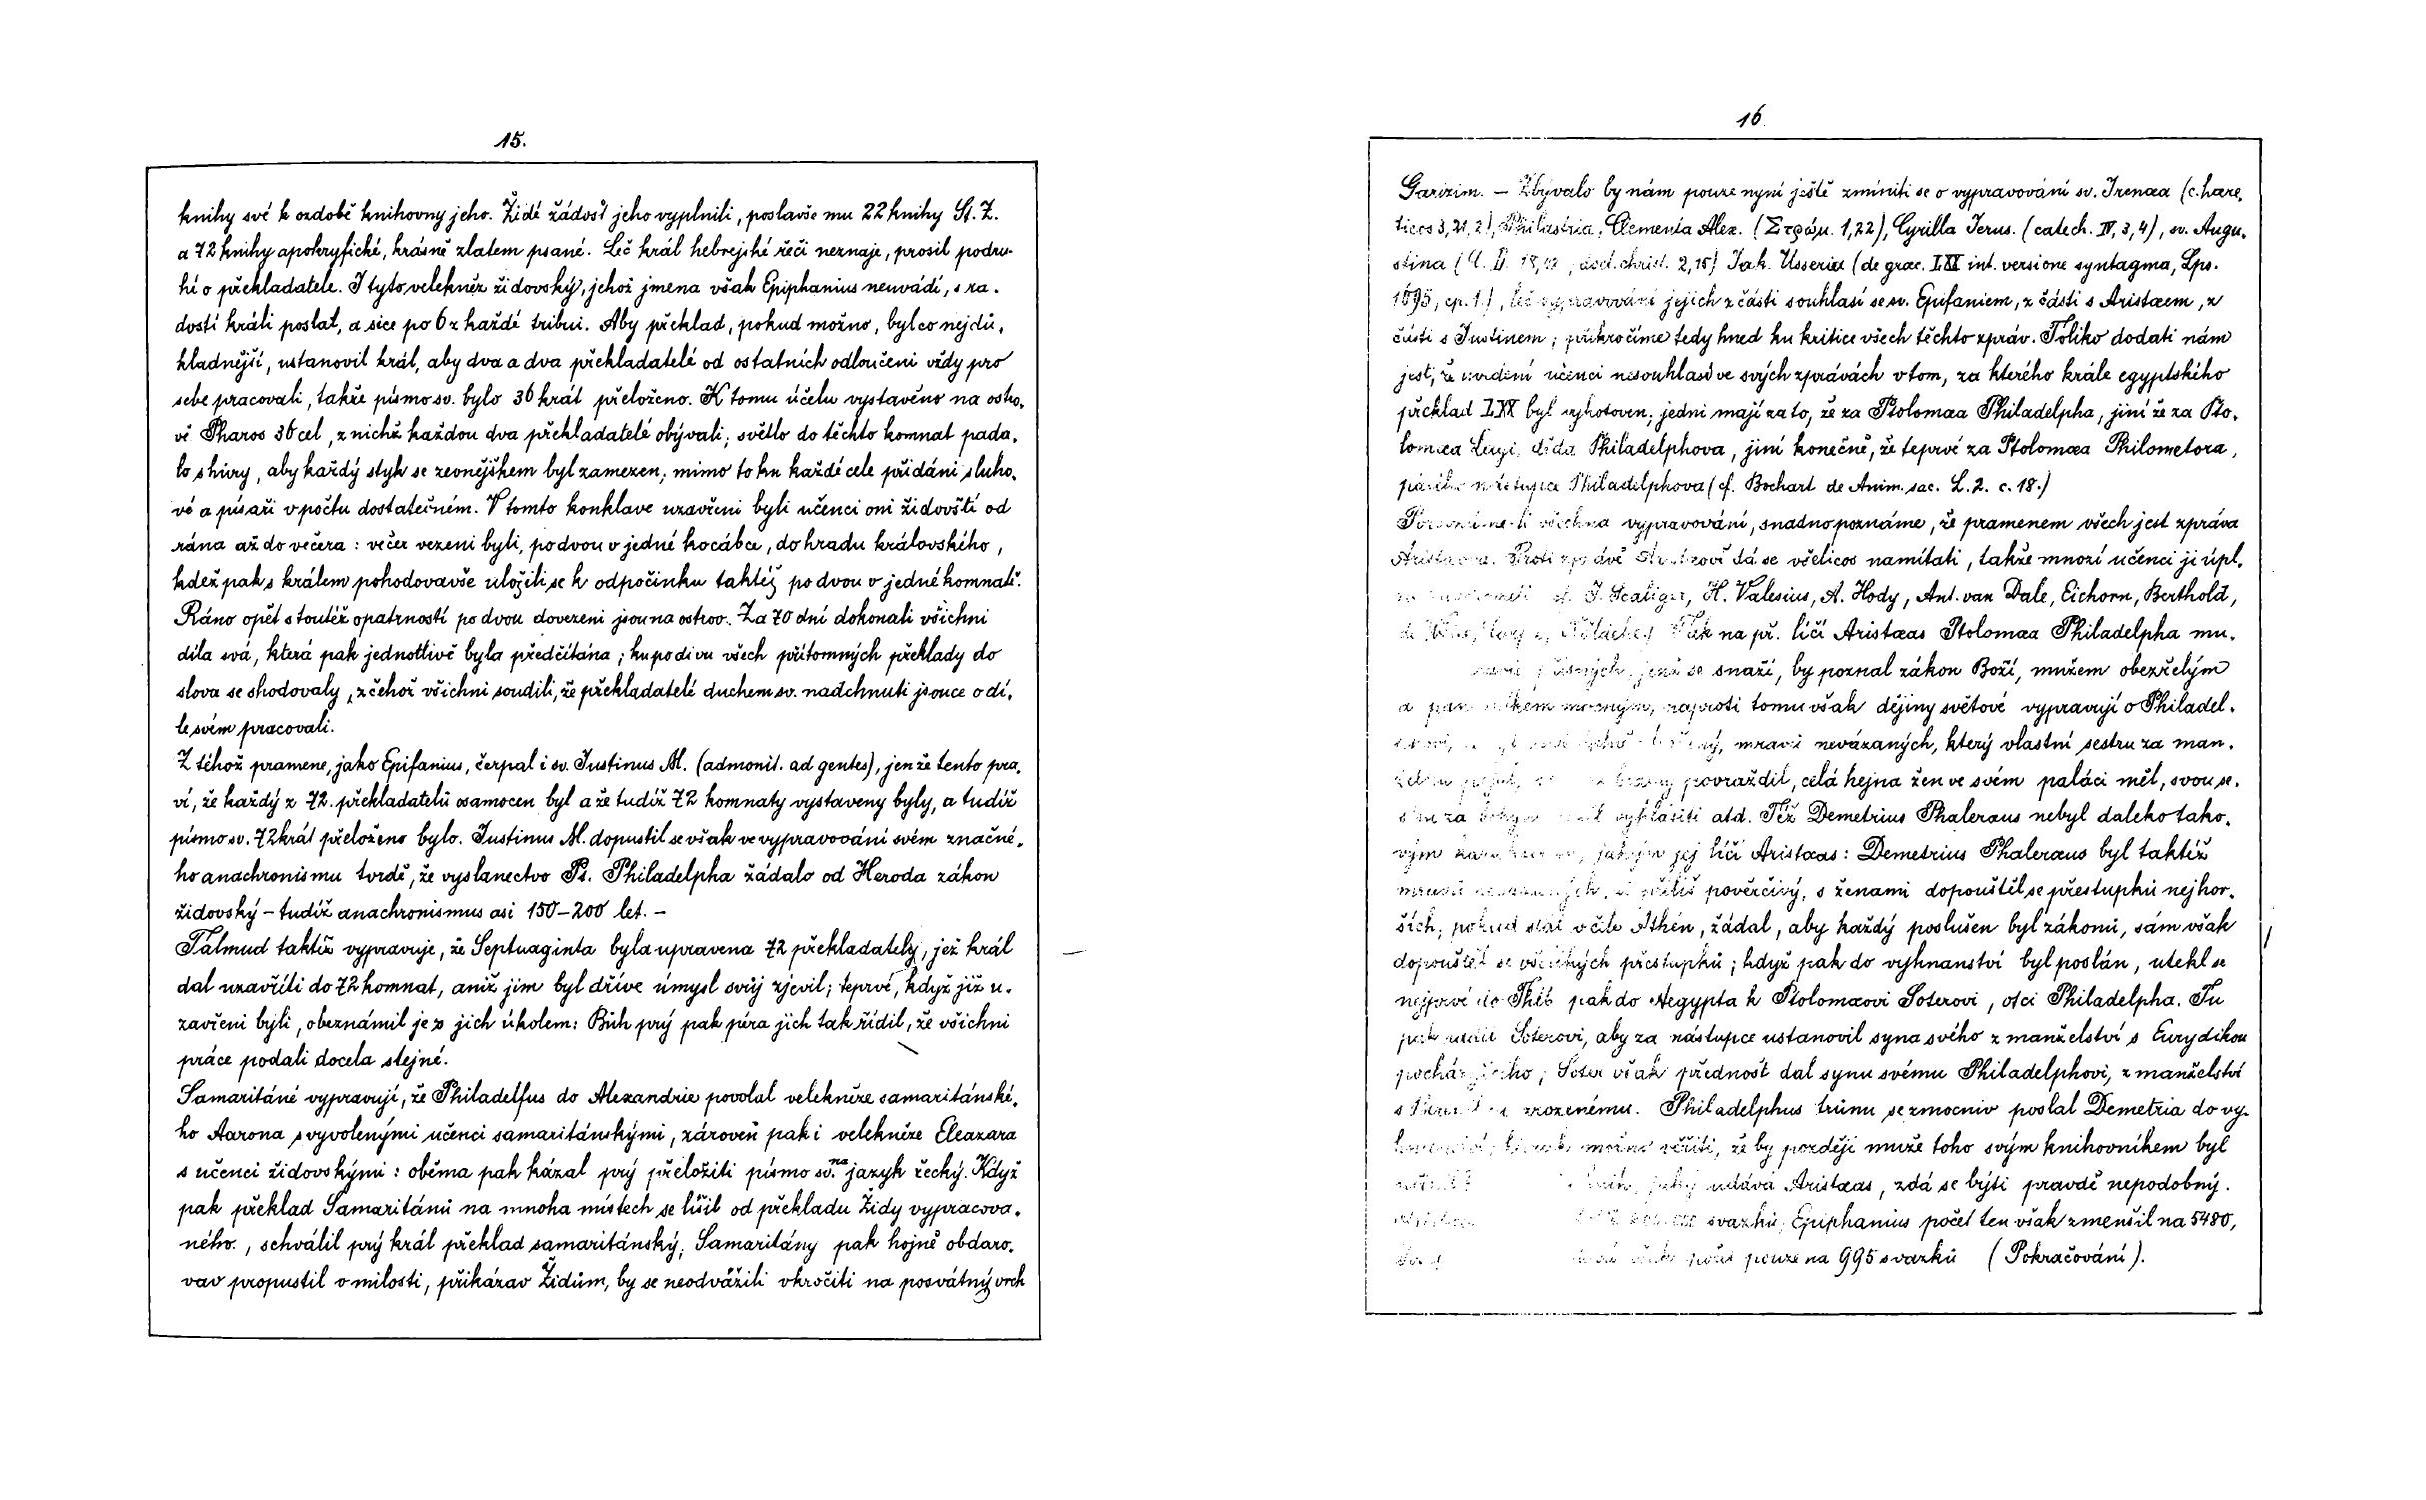 15.
knihy své k ozdobě knihovny jeho. Židé žádosť jeho vyplnili, poslavše mu 22 knihy St. Z.
a 72 knihy apokryfické, krásně zlatem psané. Leč král hebrejské řeči neznaje, prosil podru-
hé o překladatele. I tyto velekněz židovský, jehož jmena však Epiphanius neuvádí, s ra-
dostí králi poslal, a sice po 6 z každé tribui. Aby překlad, pokud možno, byl co nejdů-
kladnější, ustanovil král, aby dva a dva překladatelé od ostatních odloučeni vždy pro
sebe pracovali, takže písmo sv. bylo 36 krát přeloženo. K tomu účelu vystavěno na ostro-
vě Pharos 36 cel, z nichž každou dva překladatelé obývali; světlo do těchto komnat pada-
lo shůry, aby každý styk se zevnějškem byl zamezen; mimo to ku každé cele přidáni sluho-
vé a písaři v počtu dostatečném. V tomto konklave uzavřeni byli učenci oni židovští od
rána až do večera: večer vezeni byli, po dvou v jedné kocábce, do hradu královského,
kdež pak s králem pohodovavše uložili se k odpočinku taktéž po dvou v jedné komnatě.
Ráno opět s toutéž opatrností po dvou dovezeni jsou na ostrov. Za 70 dní dokonali všichni
díla svá, která pak jednotlivě byla předčítána; kupodivu všech přítomných překlady do
slova se shodovaly, z čehož všichni soudili, že překladatelé duchem sv. nadchnuti jsouce o dí-
le svém pracovali.
Z téhož pramene, jako Epifanius, čerpal i sv. Justinus M. (admonit. ad gentes), jen že tento pra-
ví, že každý z 72. překladatelů osamocen byl a že tudíž 72 komnaty vystaveny byly, a tudíž
písmo sv. 72krát přeloženo bylo. Justinus M. dopustil se však ve vypravování svém značné-
ho anachronismu tvrdě, že vyslanectvo Pt. Philadelpha žádalo od Heroda zákon
židovský – tudíž anachronismus asi 150–200 let. –
Talmud taktéž vypravuje, že Septuaginta byla upravena 72 překladately, jež král
dal uzavříti do 72 komnat, aniž jim byl dříve úmysl svůj zjevil; teprvé, když již u-
zavřeni byli, obeznámil je s jich úkolem: Bůh prý pak péra jich tak řídil, že všichni
práce podali docela stejné.
Samaritáné vypravují, že Philadelfus do Alexandrie povolal velekněze samaritánské-
ho Aarona s vyvolenými učenci samaritánskými, zároveň pak i velekněze Eleazara
s učenci židovskými: oběma pak kázal prý přeložiti písmo sv. na jazyk řecký. Když
pak překlad Samaritánů na mnoha místech se lišil od překladu Židy vypracova-
ného, schválil prý král překlad samaritánský; Samaritány pak hojně obdaro-
vav propustil v milosti, přikázav Židům, by se neodvážili vkročiti na posvátný vrch
16.
Garizim. – Zbývalo by nám pouze nyní ještě zmíniti se o vypravování sv. Irenæa (c. hære-
ticos 3, 21, 2), Philastria, Clementa Alex. (Στρώμ. 1,22), Cyrilla Jerus. (catech. IV, 3, 4), sv. Augu-
stina christ. 2, 15) Jak. Usseria (de græc. LXX int. versione syntagma, Lps.
1695, cp. 1.), leč vypravování jejich z části souhlasí se sv. Epifaniem, z části s Aristæem, z
části s Justinem; přikročíme tedy hned ku kritice všech těchto zpráv. Toliko dodati nám
jest, že uvedení učenci nesouhlasí ve svých zprávách v tom, za kterého krále egyptského
překlad LXX byl vyhotoven; jedni mají za to, že za Ptolomæa Philadelpha, jiní že za Pto-
lomæa Lagi, děda Philadelphova, jiní konečně, že teprvé za Ptolomæa Philometora,
nástupce Philadelphova (cf. Bochart de Anim. sac. L. 2. c. 18.)
všechna vypravování, snadno poznáme, že pramenem všech jest zpráva
Aristæova. Proti zprávě Aristæově dá se všelicos namítati, takže mnozí učenci ji úpl-
J. Scaliger, H. Valesius, A. Hody, Ant. van Dale, Eichorn, Berthold,
Tak na př. líčí Aristæas Ptolomæa Philadelpha mu-
jenž se snaží, by poznal zákon Boží, mužem obezřelým
a mocným, naproti tomu však dějiny světové vypravují o Philadel-
mravů nevázaných, který vlastní sestru za man-
povraždil, celá hejna žen ve svém paláci měl, svou se-
za vyhlásiti atd. Též Demetrius Phaleræus nebyl daleko tako-
vým jakým jej líčí Aristæas: Demetrius Phaleræus byl taktéž
mravů příliš pověrčivý, s ženami dopouštěl se přestupků nejhor-
ších; pokud stál v čele Athén, žádal, aby každý poslušen byl zákonů, sám však
dopouštěl se všelikých přestupků; když pak do vyhnanství byl poslán, utekl se
nejprvé do Théb pak do Aegypta k Ptolomæovi Soterovi, otci Philadelpha. Tu
pak radil Soterovi, aby za nástupce ustanovil syna svého z manželství s Eurydikou
pocházejícího; Soter však přednost dal synu svému Philadelphovi, z manželství
s zrozenému. Philadelphus trůnu se zmocniv poslal Demetria do vy-
možno věřiti, že by později muže toho svým knihovníkem byl
jaký udává Aristæas, zdá se býti pravdě nepodobný.
svazků; Epiphanius počet ten však zmenšil na 5480,
počet pouze na 995 svazků (Pokračování).